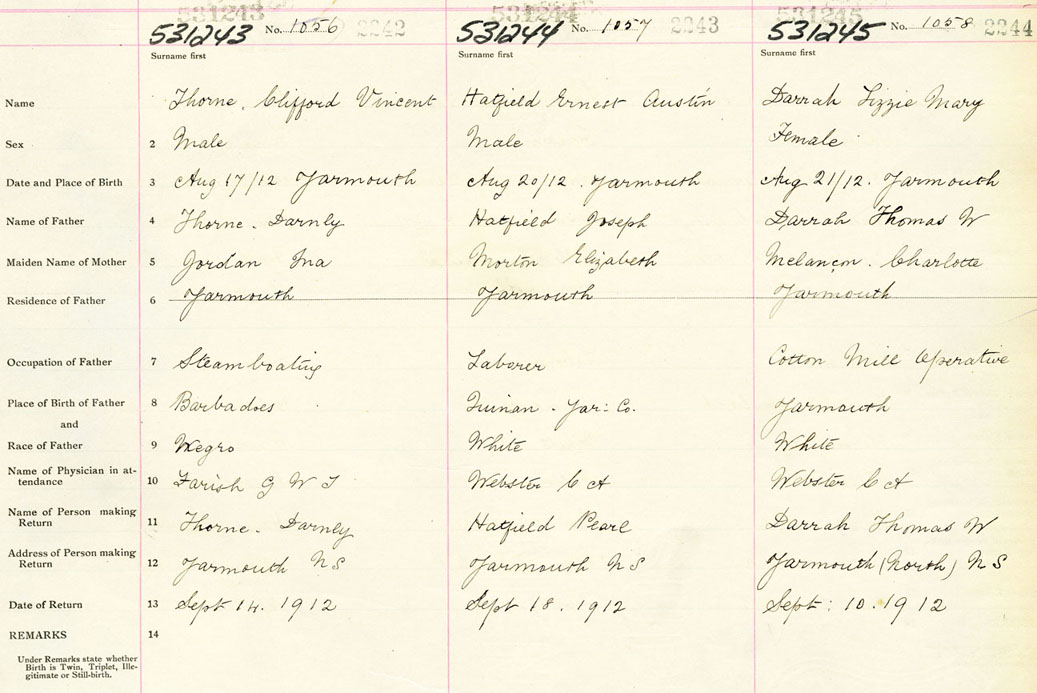 531243 531244 531245
531243 No. 1056 2242 531244 No. 1057 2243 531245 No. 1058 2244
Surname first Surname first Surname first
Name Thorne, Clifford Vincent Hatfield Ernest Austin Darrah Lizzie Mary
Sex 2 Male Male Female
Date and Place of Birth 3 Aug 17/12 Yarmouth Aug 20/12. Yarmouth Aug 21/12. Yarmouth
Name of Father 4 Thorne. Darnly Hatfield Joseph Darrah Thomas W
Maiden Name of Mother 5 Jordan Ina Morton Elizabeth Melançon. Charlotte
Residence of Father 6 Yarmouth Yarmouth Yarmouth
Occupation of Father 7 Steamboating Laborer Cotton Mill Operative
Place of Birth of Father 8 Barbadoes Quinan. Yar: Co. Yarmouth
and
Race of Father 9 Negro White White
Name of Physician in at-
tendance 10 Farish G W T Webster C A Webster C A
Name of Person making
Return 11 Thorne. Darnly Hatfield Pearl Darrah Thomas W
Address of Person making
Return 12 Yarmouth N S Yarmouth N S Yarmouth (North) N S
Date of Return 13 Sept 14. 1912 Sept 18. 1912 Sept: 10. 1912
REMARKS 14
Under Remarks state whether
Birth is Twin, Triplet, Ille-
gitimate or Still-birth.